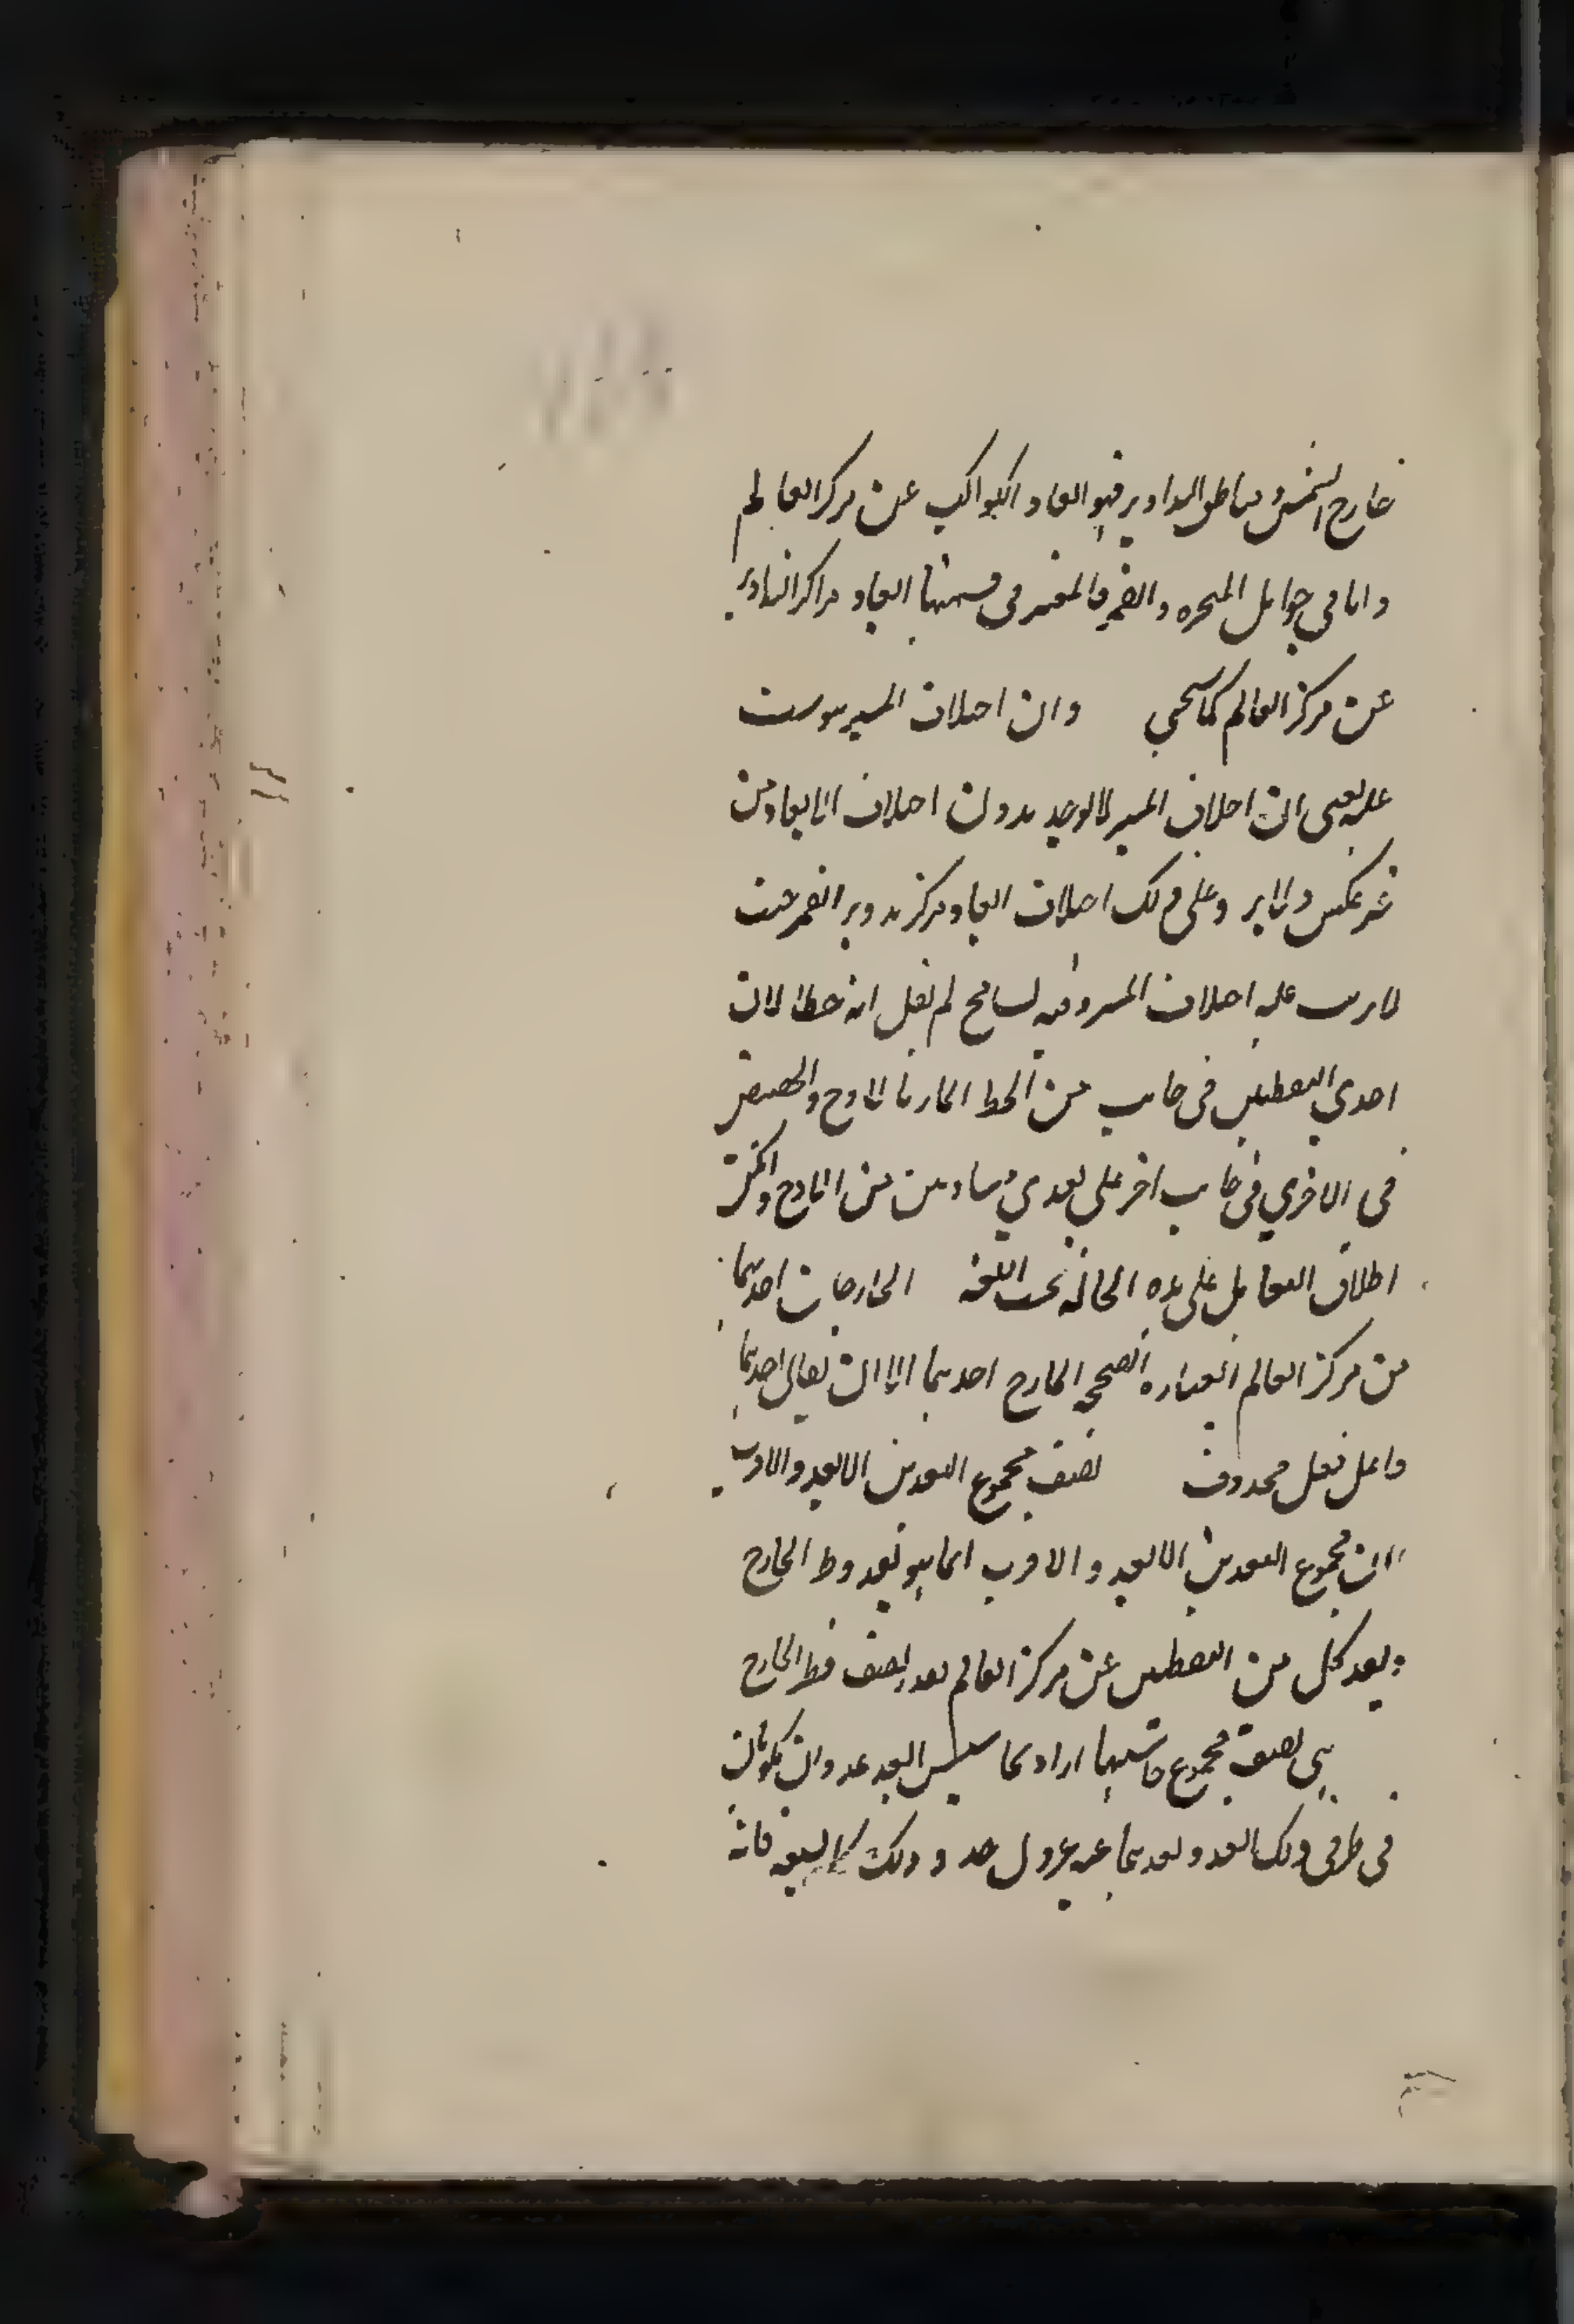 خارج الشمس ومناطق التداوير فهو ابعاد الكواكب عن مركز العالم
واما في حوامل المتحيرة والقمر فالمعتبر في قسمتها ابعاد مراكز التداوير
عن مركز العالم كما سيجي وان اختلاف المسير مترتب
عليه يعنى ان اختلاف المسير لا يوجد بدون اختلاف الابعاد من
غير عكس ولا يرد على ذلك اختلاف ابعاد مركز تدوير القمر حيث
لا يترتب عليه اختلاف المسير وفيه تسامح لم نقل انه خطا لان
احدى النقطتين في جانب من الخط المار بالاوج والحضيض
في الاخرى في جانب اخر على بعدي متساويين من الاوج واكثر
اطلاق التقابل على هذه الحالة بحسب اللغة الخارجان احديهما
من مركز العالم العبارة الصحيحة الخارج احديهما الا ان يقال احديهما
فاعل فعل محذوف نصف مجموع البعدين الابعد والاقرب
لان مجموع البعدين الابعد والاقرب انما هو بقدر قطر الخارج
وبعد كل من النقطتين عن مركز العالم بقدر نصف قطر الخارج
هي نصف مجموع حاشيتيها اراد بحاشيتي العدد عددان يكونان
في طرفي ذلك العدد وبعدهما عنه بعدول حد وذلك كالسبعة فانه